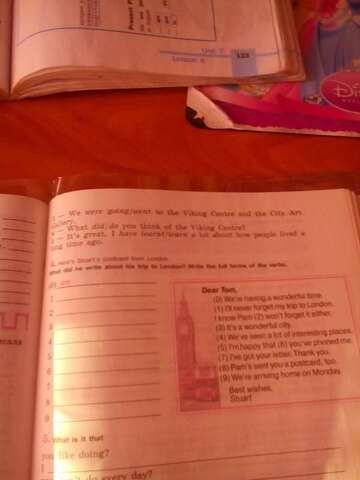 Unit 7
Lesson 6 123
3 — We were going/went to the Viking Centre and the City Art
Gallery.
4 — What did/do you think of the Viking Centre?
5 — It's great. I have learnt/learn a lot about how people lived a
long time ago.
4. Here's Stuart's postcard from London.
What did he write about his trip to London? Write the full forms of the verbs.
1
2
3
4
5
6
7
8
9
Dear Tom,
(0) We're having a wonderful time.
(1) I'll never forget my trip to London.
I know Pam (2) won't forget it either.
(3) It's a wonderful city.
(4) We've seen a lot of interesting places.
(5) I'm happy that (6) you've phoned me.
(7) I've got your letter. Thank you.
(8) Pam's sent you a postcard, too.
(9) We're arriving home on Monday.
Best wishes,
Stuart
5. What is it that
you like doing?
I
every day?